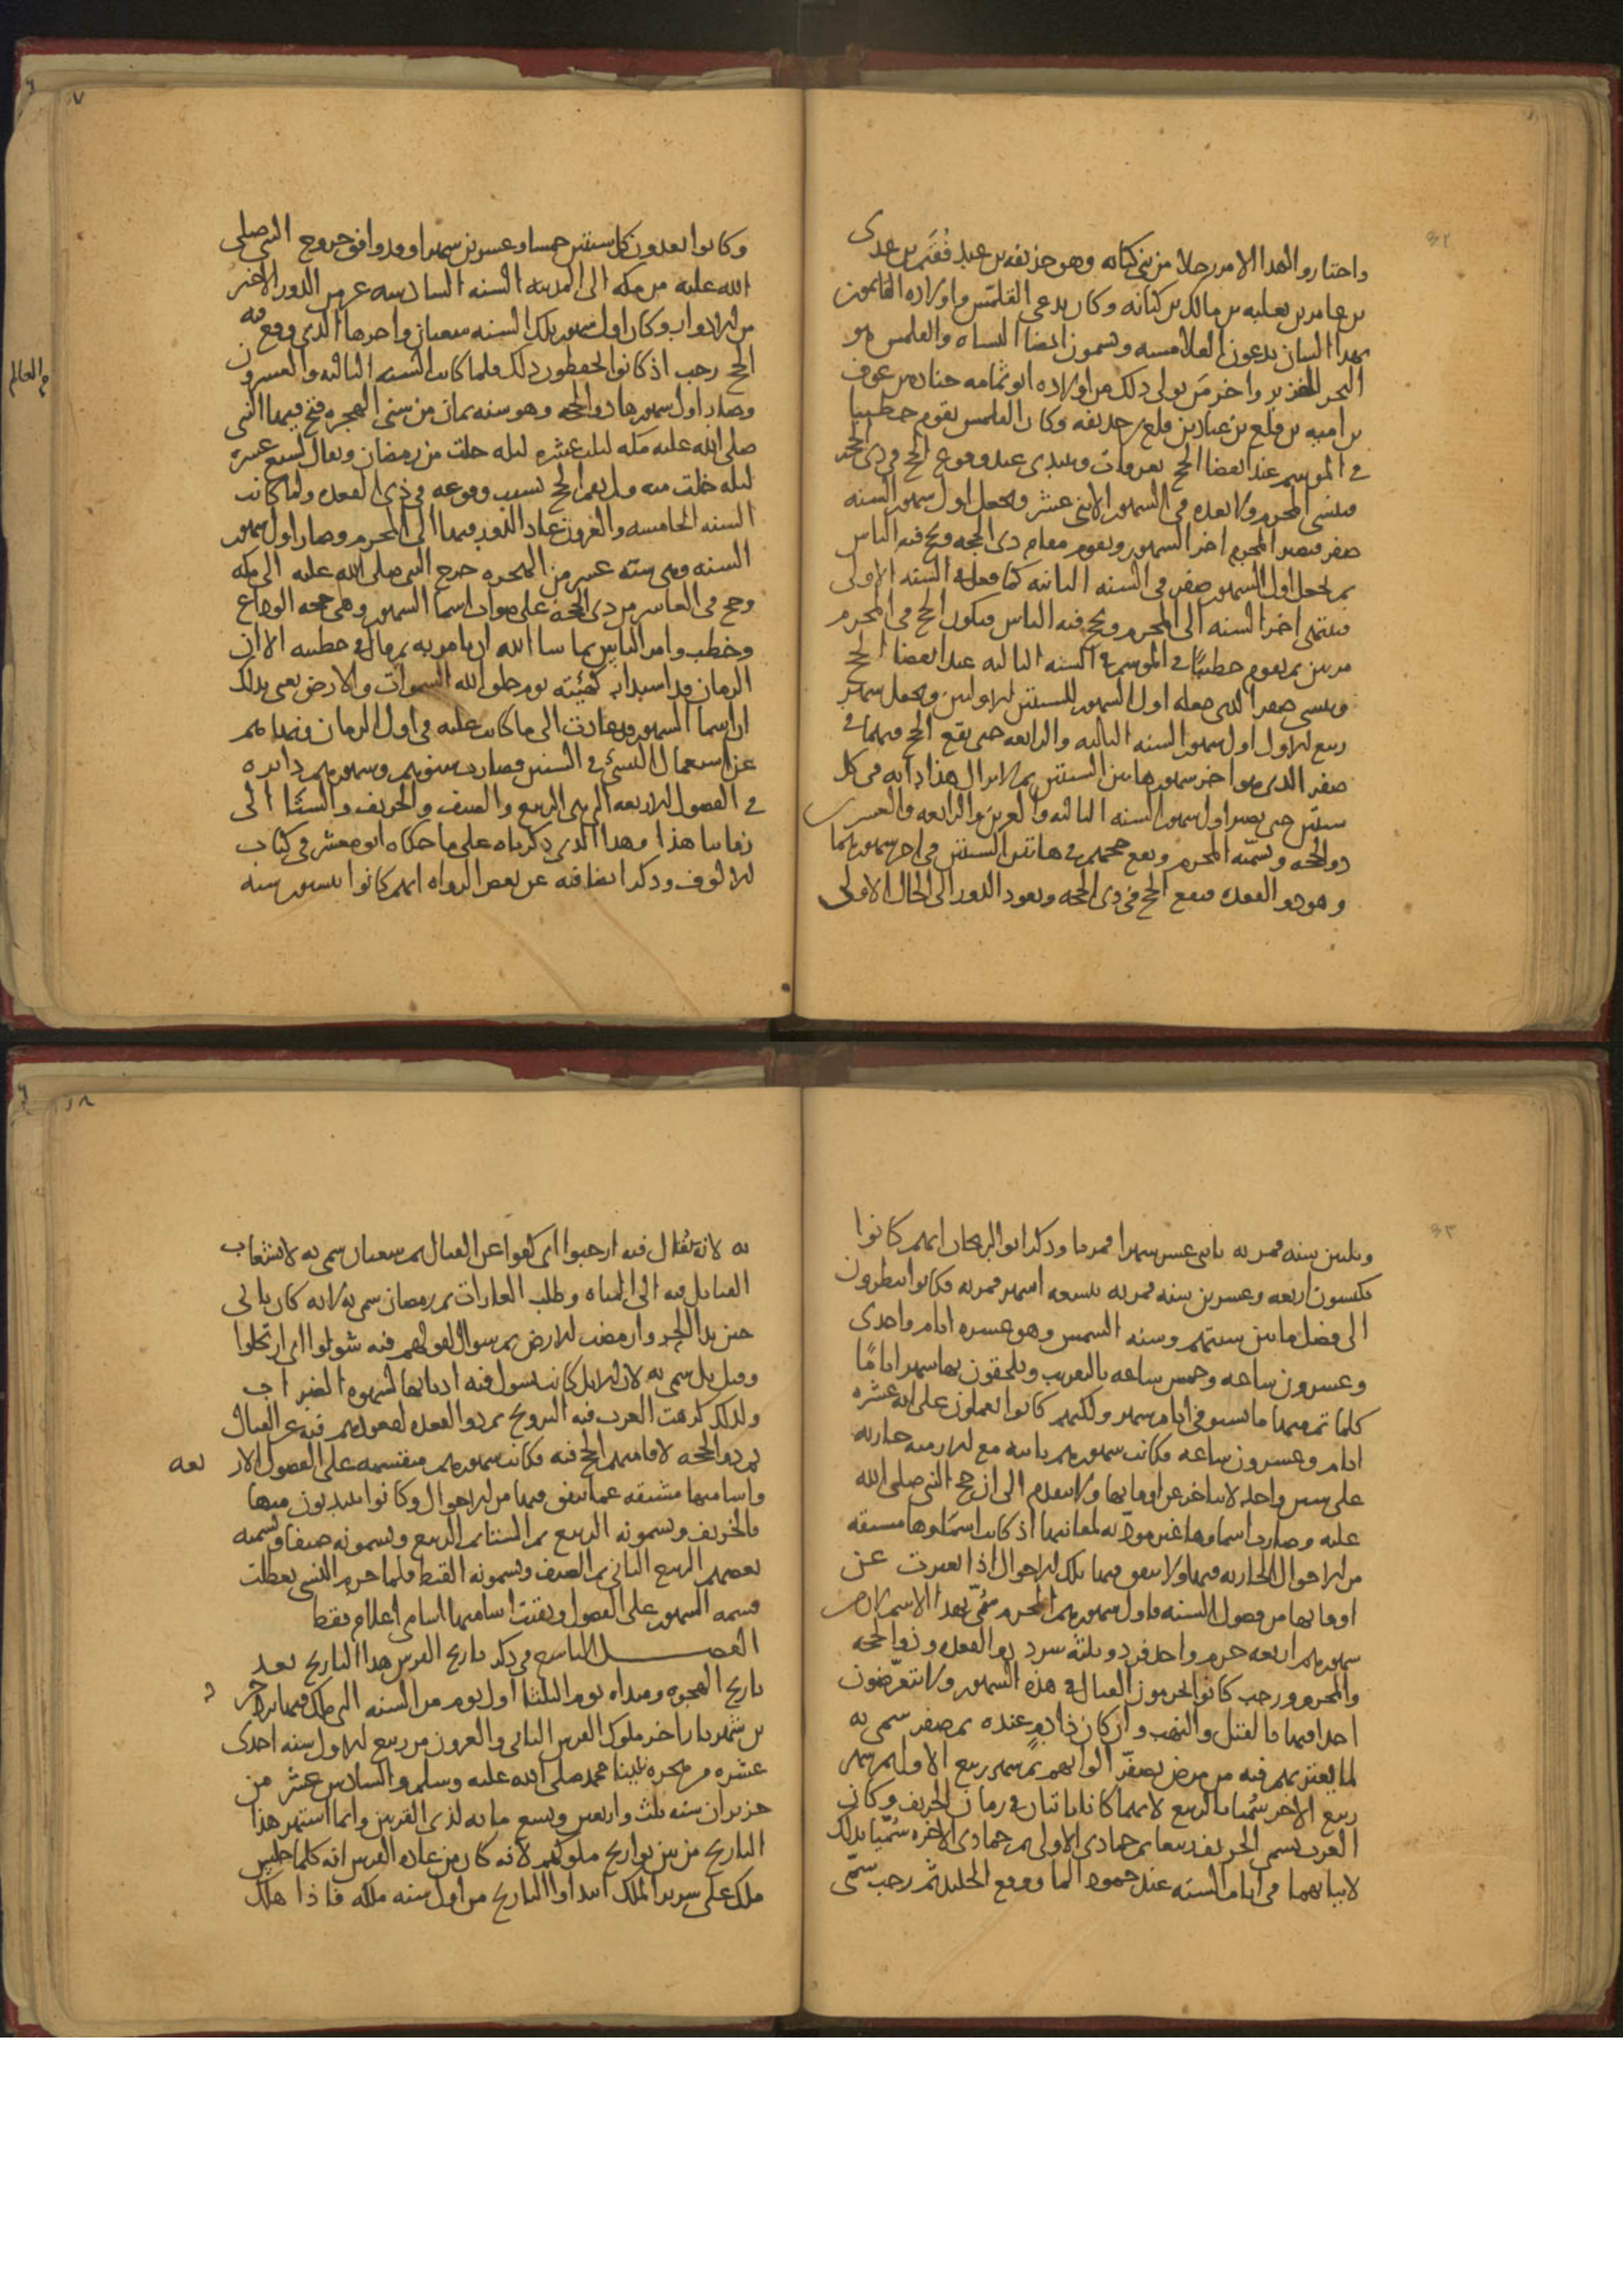 ٣٢
واختاروا لهذا الامر رجلا من بني كنانه وهو حذيفه بن عبد فُقَيم بن عدى
بن عامر بن ثعلبه بن مالك بن كنانه وكان يدعى القلمّس واولاده القايمون
بهذا الشان يدعون القلامسه ويسمون ايضا النساه والقلمس هو
البحر الغزير واخر من تولى ذلك من اولاده ابو ثمامه جناده بن عوف
بن اميه بن قلع بن عباد بن قلع بن حذيفه وكان القلمس يقوم خطيبا
في الموسم عند انقضا الحج بعرفات ويبتدى عند وقوع الحج في ذى الحجه
فينسى المحرم ولا يعده في الشهور الاثنى عشر ويجعل اول شهور السنه
صفر فيصير المحرم اخر الشهور ويقوم مقام ذى الحجه ويحج فيه الناس
ثم يجعل اول الشهور صفر في السنه الثانيه كما فعل في السنه الاولى
فينتهى اخر السنه الى المحرم ويحج فيه الناس فيكون الحج في المحرم
مرتين ثم يقوم خطيبًا في الموسم في السنه الثالثه عند انقضا الحج
وينسى صفر الذى جعله اول الشهور للسنتين الاوليين ويجعل شهر
ربيع الاول اول شهور السنه الثالثه والرابعه حتى يقع الحج فيهما في
صفر الذى هو اخر شهور هاتين السنتين ثم لا يزال هذا دابه في كل
سنتين حتى يصير اول شهور السنه الثالثه والعشرين والرابعه والعشرين
ذو الحجه ويسميّه المحرم ويقع حجهم في هاتين السنتين في اخر شهورهما
وهو ذو القعده فيقع الحج في ذى الحجه ويعود الدور الى الحال الاولى
٧
وكانوا يعدون كل سنتين خمسا وعشرين شهرا وقد وافق خروج النبي صلى
الله عليه من مكه الى المدينه السنه السادسه عشر من الدور الاخير
من الادوار وكان اول شهور تلك السنه شعبان واخرها الذى وقع فيه
الحج رجب اذ كانوا يحفظون ذلك فلما كانت السنه الثالثه والعشرون
وصار اول شهورها ذو الحجه وهو سنه ثمان من سني الهجره فتح فيها النبي
صلى الله عليه مكه لثلث عشره ليله خلت من رمضان ويقال لسبع عشره
ليله خلت منه ولم يقم الحج بسبب وقوعه في ذى القعده ولما كانت
السنه الخامسه والعشرون عاد الدور فيها الى المحرم وصار اول شهور
السنه وهى سنه عشر من الهجره خرج النبي صلى الله عليه الى مكه
وحج في العاشر من ذى الحجه على صواب اسما الشهور وهى حجه الوداع
وخطب وامر الناس بما شا الله ان يامر به ثم قال في خطبته الا ان
الزمان قد استدار كهيئته يوم خلق الله السموات والارض يعنى بذلك
ان اسما الشهور قد عادت الى ما كانت عليه في اول الزمان فنهاهم
عن استعمال النسئ في السنين فصارت سنوهم وشهورهم دايره
في الفصول الاربعه التى هى الربيع والصيف والخريف والشتا الى
زماننا هذا وهذا الذى ذكرناه على ما حكاه ابو معشر في كتاب
الالوف وذكر ايضا فيه عن بعض الرواه انهم كانوا ينسون سنه
في العالم
٣٣
وثلثين سنه قمريه باثنى عشر شهرا قمريا وذكر ابو الريحان انهم كانوا
يكبسون اربعه وعشرين سنه قمريه بتسعه اشهر قمريه فكانوا ينظرون
الى فضل ما بين سنتهم وسنه الشمس وهو عشره ايام واحدى
وعشرون ساعه وخمس ساعه بالتقريب ويلحقون بها شهرا تامًا
كلما تم فيها ما يستوفى ايام شهر ولكنهم كانوا يعملون على انه عشره
ايام وعشرون ساعه فكانت شهورهم ثابته مع الازمنه جاريه
على سنن واحد لا يتاخر عن اوقاتها ولا يتقدم الى ان حج النبي صلى الله
عليه وصارت اسماوها غير موديه لمعانيها اذ كانت اسماوها مشتقه
من الاحوال الجاريه فيها ولا يتفق فيها تلك الاحوال اذا تغيرت عن
اوقاتها من فصول السنه فاول شهورهم المحرم سُمّى بهذا الاسم لان من
شهورهم اربعه حرم واحد فرد وثلثه سرد ذو القعده وذو الحجه
والمحرم ورجب كانوا يحرمون القتال في هذه الشهور ولا يتعرّضون
احدا فيها بالقتل والنهب وان كان ذا دمٍ عنده ثم صفر سمى به
لما يعتريهم فيه من مرض يصفّر الوانهم ثم شهر ربيع الاول ثم شهر
ربيع الاخر سُميّا بالربيع لانهما كانا ياتيان في زمان الخريف وكان
العرب تسمى الخريف ربيعا ثم جمادى الاولى ثم جمادى الاخره سُمّيا بذلك
لاتيانهما في ايام الشته عند جمود الما ووقوع الجليد ثم رجب سمّى
٨
به لانه يُقال فيه ارجبوا اى كفوا عن القتال ثم شعبان سمى به لانشعاب
القبايل فيه الى المياه وطلب الغارات ثم رمضان سمى به لانه كان ياتى
حين بدا الحر وارمضت الارض ثم شوال لقولهم فيه شولوا اى ارتحلوا
وقيل بل سمى به لان الابل كانت تشول فيه اذنابها لشهوه الضراب
ولذلك كرهت العرب فيه التزويج ثم ذو القعده لقعودهم فيه عن القتال
ثم ذو الحجه لاقامتهم الحج فيه فكانت شهورهم منقسمه على الفصول الاربعه
واساميها مشتقه عما يتفق فيها من الاحوال وكانوا يبتديون فيها
بالخريف ويسمونه الربيع ثم الشتا ثم الربيع ويسمونه صيفا ويسميه
بعضهم الربيع الثاني ثم الصيف ويسمونه القيظ فلما حرم النسى تعطلت
قسمه الشهور على الفصول وبقيت اساميها اسامى اعلام فقط
الفصل التاسع في ذكر تاريخ الفرس هذا التاريخ بعد
تاريخ الهجره ومبداه يوم الثلثا اول يوم من السنه التى ملك فيها يزدجرد
بن شهريار اخر ملوك الفرس الثانى والعشرون من ربيع الاول سنه احدى
عشره من هجره نبينا محمد صلى الله عليه وسلم والسادس عشر من
حزيران سنه ثلث واربعين وتسع مايه لذى القرنين وانما استمر هذا
التاريخ من بين تواريخ ملوكهم لانه كان من عاده الفرس انه كلما جلس
ملك على سرير الملك ابتداوا التاريخ من اول سنه ملكه فاذا هلك